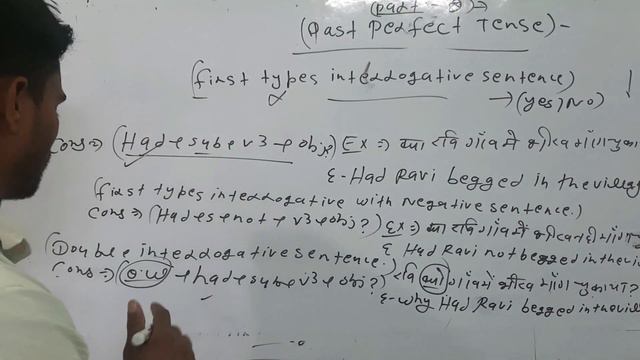 (Part - 3)→
(Past Perfect Tense) -
(First types interrogative sentence)
→ (Yes/No)
Cons ⇒ (Had + sub + v3 + obj?) Ex ⇒ क्या रवि गाँव में भीख माँग चुका
E- Had Ravi begged in the village
(First types interrogative with negative sentence.)
Cons ⇒ (Had + s + not + v3 + obj?) Ex ⇒ क्या रवि गाँव में भीख नहीं माँग
E Had Ravi not begged in the vi
(Double interrogative sentence.)
Cons ⇒ Q.W + had + sub + v3 + obj?) रवि क्यों गाँव में भीख माँग चुका था?
E- Why Had Ravi begged in the vill